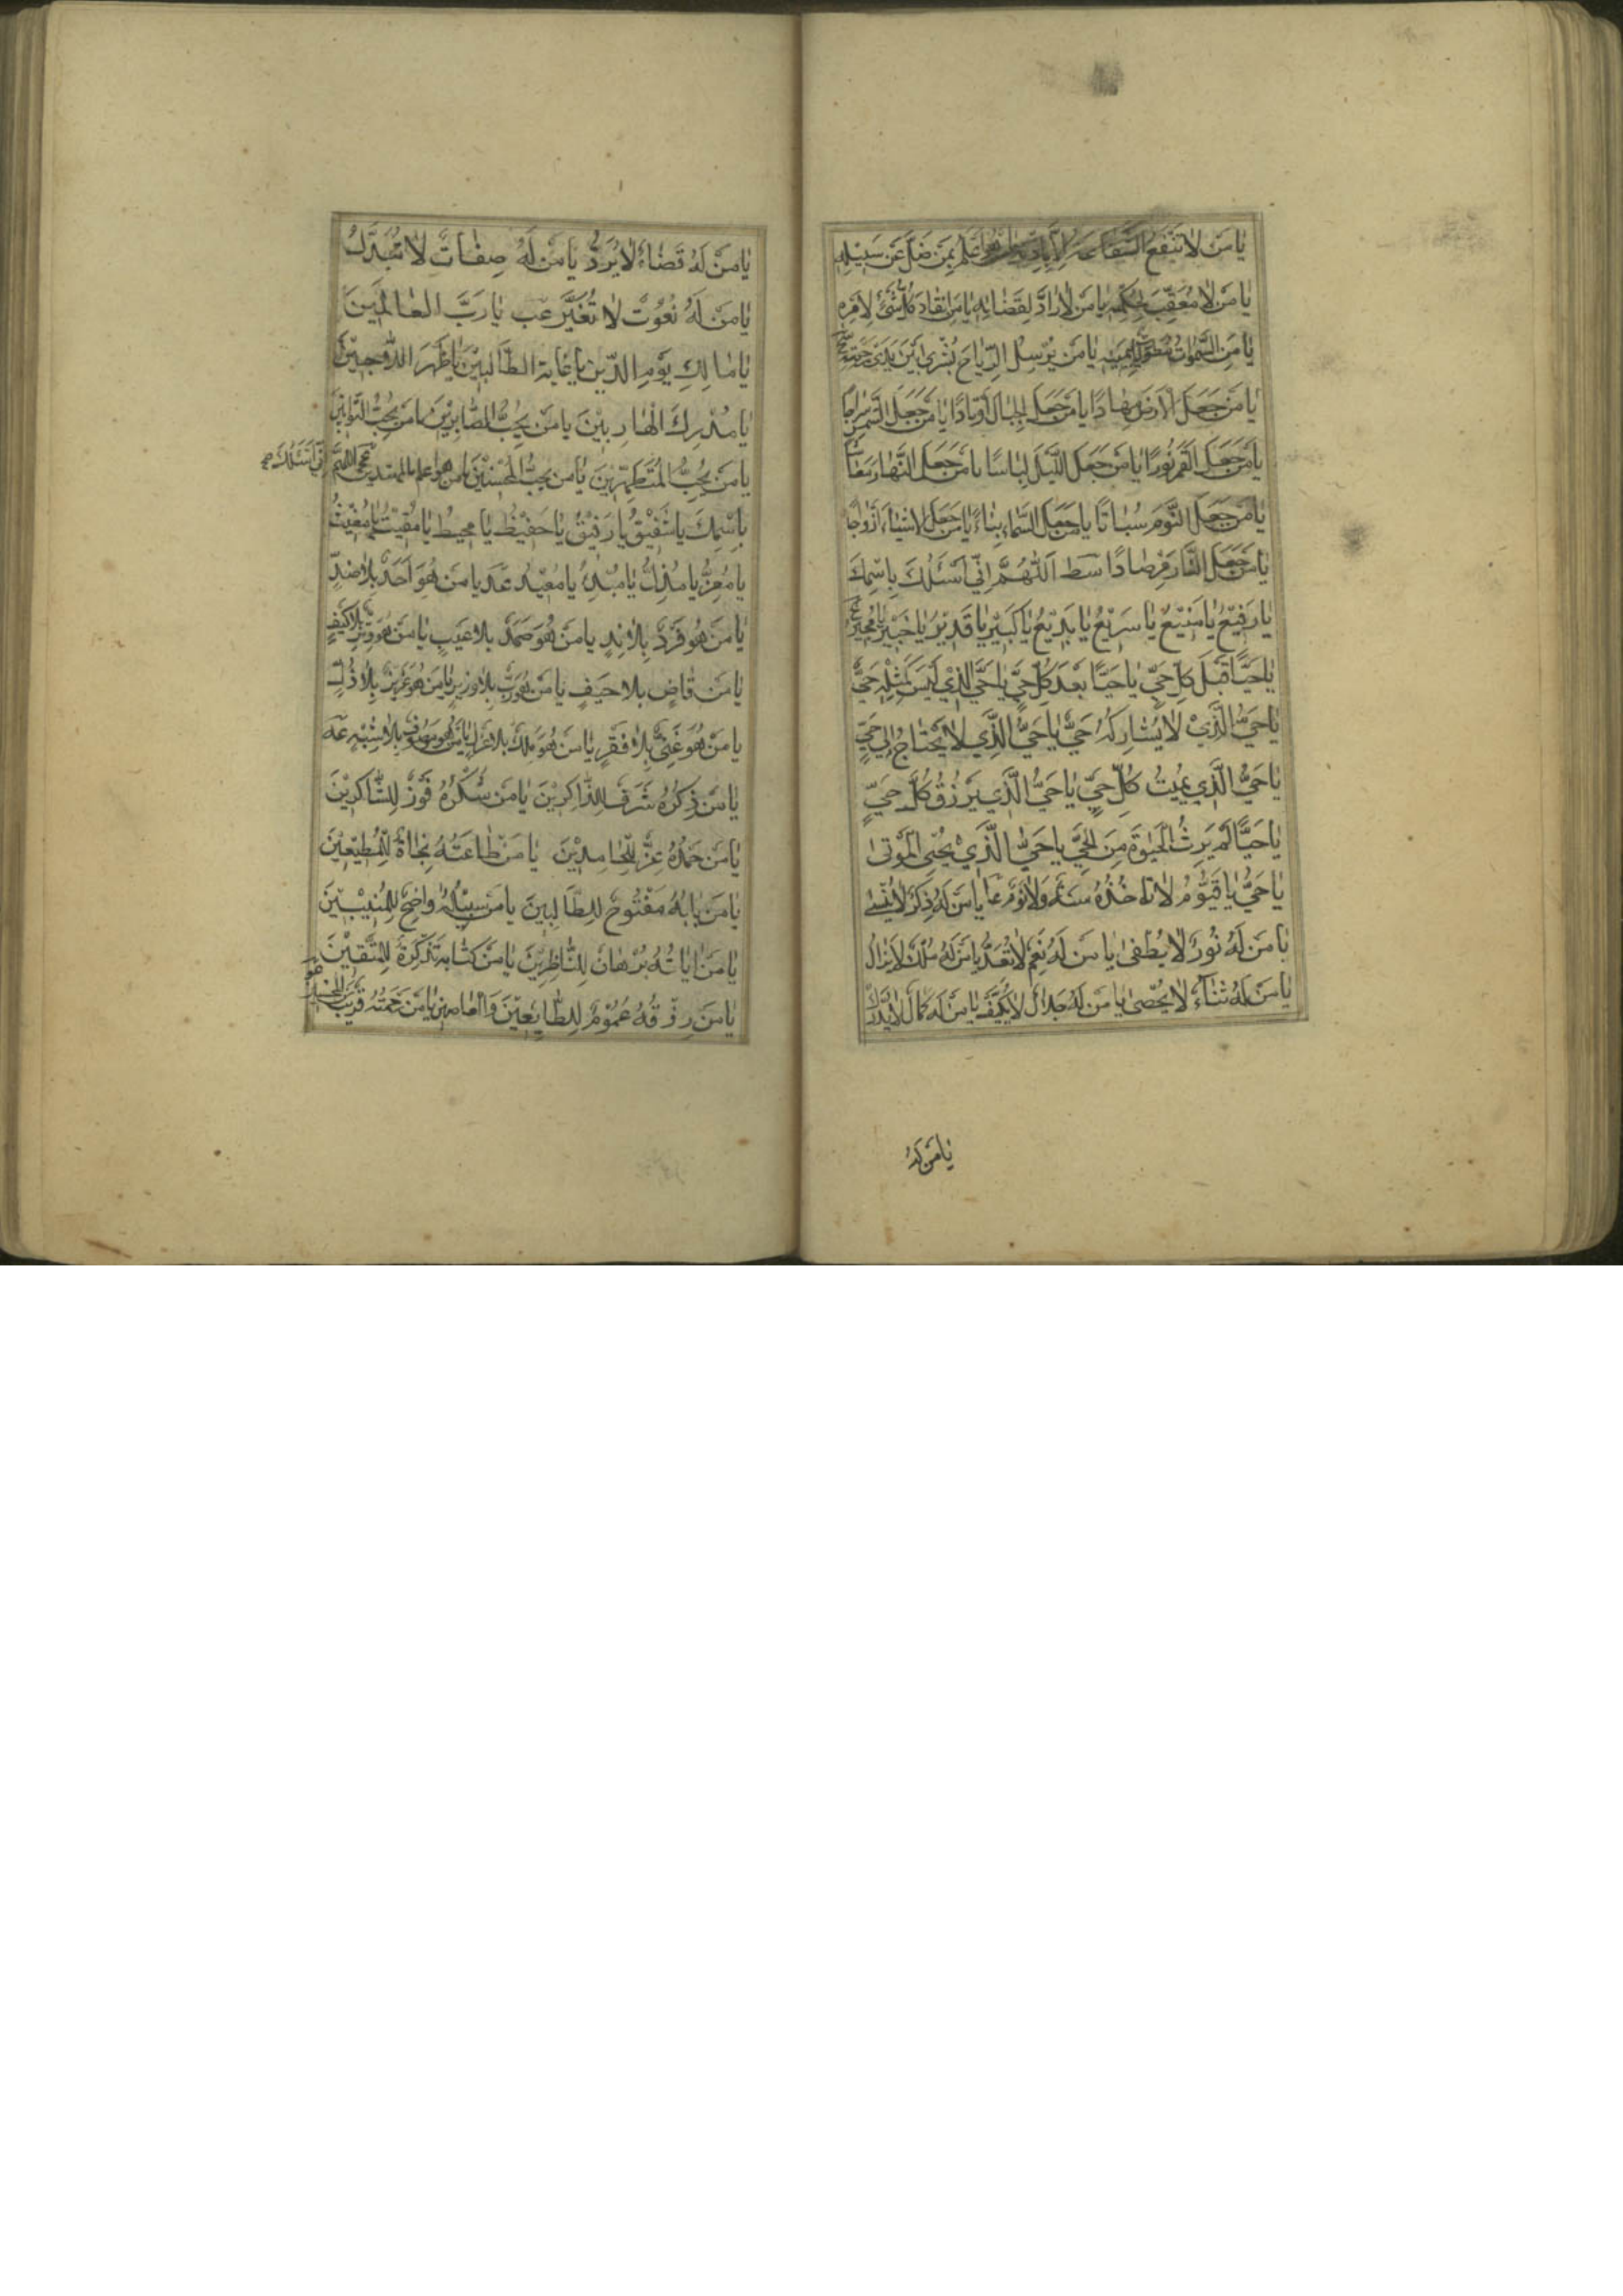 يٰا مَنْ لاٰ تَنْفَعُ الشَّفٰاعَةُ اِلاّٰ بِاِذْنِهِ اَعْلَمُ بِمَنْ ضَلَّ عَنْ سَبِيْلِهِ
يٰا مَنْ لاٰ مُعَقِّبَ لِحُكْمِهِ يٰا مَنْ لاٰ رٰادَّ لِقَضٰائِهِ يٰا مَنِ انْقٰادَ كُلُّ شَيْءٍ لِاَمْرِهِ
يٰا مَنِ السَّمٰوٰاتُ مَطْوِيّٰاتٌ بِيَمِيْنِهِ يٰا مَنْ يُرْسِلُ الرِّيٰاحَ بُشْرىً بَيْنَ يَدَيْ رَحْمَتِهِ
يٰا مَنْ جَعَلَ الْاَرْضَ مِهٰادًا يٰا مَنْ جَعَلَ الْجِبٰالَ اَوْتٰادًا يٰا مَنْ جَعَلَ الشَّمْسَ سِرٰاجًا
يٰا مَنْ جَعَلَ الْقَمَرَ نُوْرًا يٰا مَنْ جَعَلَ اللَّيْلَ لِبٰاسًا يٰا مَنْ جَعَلَ النَّهٰارَ مَعٰاشًا
يٰا مَنْ جَعَلَ النَّوْمَ سُبٰاتًا يٰا مَنْ جَعَلَ السَّمٰاءَ بِنٰاءً يٰا مَنْ جَعَلَ الْاَشْيٰاءَ اَزْوٰاجًا
يٰا مَنْ جَعَلَ النّٰارَ مِرْصٰادًا سط اَللّٰهُمَّ اِنِّي اَسْئَلُكَ بِاسْمِكَ
يٰا رَفِيْعُ يٰا مَنِيْعُ يٰا سَرِيْعُ يٰا بَدِيْعُ يٰا كَبِيْرُ يٰا قَدِيْرُ يٰا خَبِيْرُ يٰا مُجِيْرُ
يٰا حَيًّا قَبْلَ كُلِّ حَيٍّ يٰا حَيًّا بَعْدَ كُلِّ حَيٍّ يٰا حَيُّ الَّذِيْ لَيْسَ كَمِثْلِهِ حَيٌّ
يٰا حَيُّ الَّذِيْ لاٰ يُشٰارِكُهُ حَيٌّ يٰا حَيُّ الَّذِي لاٰ يَحْتٰاجُ اِلىٰ حَيٍّ
يٰا حَيُّ الَّذِي يُمِيْتُ كُلَّ حَيٍّ يٰا حَيُّ الَّذِي يَرْزُقُ كُلَّ حَيٍّ
يٰا حَيًّا لَمْ يَرِثِ الْحَيٰوةَ مِنَ الْحَيِّ يٰا حَيُّ الَّذِيْ يُحْيِي الْمَوْتىٰ
يٰا حَيُّ يٰا قَيُّوْمُ لاٰ تَاْخُذُهُ سِنَةٌ وَلاٰ نَوْمٌ عا يٰا مَنْ لَهُ ذِكْرٌ لاٰ يُنْسىٰ
يٰا مَنْ لَهُ نُوْرٌ لاٰ يُطْفىٰ يٰا مَنْ لَهُ نِعَمٌ لاٰ تُعَدُّ يٰا مَنْ لَهُ مُلْكٌ لاٰ يَزٰالُ
يٰا مَنْ لَهُ ثَنٰاءٌ لاٰ يُحْصىٰ يٰا مَنْ لَهُ جَلاٰلٌ لاٰ يُكَيَّفُ يٰا مَنْ لَهُ كَمٰالٌ لاٰ يُدْرَكُ
يٰا مَنْ لَهُ
يٰا مَنْ لَهُ قَضٰاءٌ لاٰ يُرَدُّ يٰا مَنْ لَهُ صِفٰاتٌ لاٰ تُبَدَّلُ
يٰا مَنْ لَهُ نُعُوْتٌ لاٰ تُغَيَّرُ عب يٰا رَبَّ الْعٰالَمِيْنَ
يٰا مٰالِكِ يَوْمِ الدِّيْنِ يٰا غٰايَةَ الطّٰالِبِيْنَ يٰا ظَهْرَ اللّٰاجِيْنَ
يٰا مُدْرِكَ الْهٰارِبِيْنَ يٰا مَنْ يُحِبُّ الصّٰابِرِيْنَ يٰا مَنْ يُحِبُّ التَّوّٰابِيْنَ
يٰا مَنْ يُحِبُّ الْمُتَطَهِّرِيْنَ يٰا مَنْ يُحِبُّ الْمُحْسِنِيْنَ يٰا مَنْ هُوَ اَعْلَمُ بِالْمُهْتَدِيْنَ عج اَللّٰهُمَّ اِنِّي اَسْئَلُكَ
بِاسْمِكَ يٰا شَفِيْقُ يٰا رَفِيْقُ يٰا حَفِيْظُ يٰا مُحِيْطُ يٰا مُقِيْتُ يٰا مُغِيْثُ
يٰا مُعِزُّ يٰا مُذِلُّ يٰا مُبْدِئُ يٰا مُعِيْدُ عد يٰا مَنْ هُوَ اَحَدٌ بِلاٰ ضِدٍّ
يٰا مَنْ هُوَ فَرْدٌ بِلاٰ نِدٍّ يٰا مَنْ هُوَ صَمَدٌ بِلاٰ عَيْبٍ يٰا مَنْ هُوَ وِتْرٌ بِلاٰ كَيْفٍ
يٰا مَنْ قٰاضٍ بِلاٰ حَيْفٍ يٰا مَنْ هُوَ رَبٌّ بِلاٰ وَزِيْرٍ يٰا مَنْ هُوَ عَزِيْزٌ بِلاٰ ذُلٍّ
يٰا مَنْ هُوَ غَنِيٌّ بِلاٰ فَقْرٍ يٰا مَنْ هُوَ مَلِكٌ بِلاٰ عَزْلٍ يٰا مَنْ هُوَ مَوْصُوْفٌ بِلاٰ شَبِيْهٍ عه
يٰا مَنْ ذِكْرُهُ شَرَفٌ لِلذّٰاكِرِيْنَ يٰا مَنْ شُكْرُهُ فَوْزٌ لِلشّٰاكِرِيْنَ
يٰا مَنْ حَمْدُهُ عِزٌّ لِلْحٰامِدِيْنَ يٰا مَنْ طٰاعَتُهُ نَجٰاةٌ لِلْمُطِيْعِيْنَ
يٰا مَنْ بٰابُهُ مَفْتُوْحٌ لِلطّٰالِبِيْنَ يٰا مَنْ سَبِيْلُهُ وٰاضِحٌ لِلْمُنِيْبِيْنَ
يٰا مَنْ اٰيٰاتُهُ بُرْهٰانٌ لِلنّٰاظِرِيْنَ يٰا مَنْ كِتٰابُهُ تَذْكِرَةٌ لِلْمُتَّقِيْنَ
يٰا مَنْ رِزْقُهُ عُمُوْمٌ لِلطّٰايِعِيْنَ وَالْعٰاصِيْنَ يٰا مَنْ رَحْمَتُهُ قَرِيْبٌ